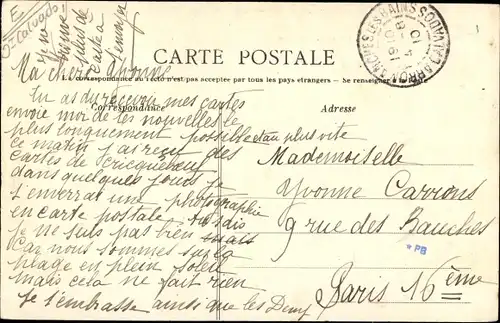 E
5-Calvados
CARTE POSTALE
La correspondance au recto n'est pas acceptée par tous les pays étrangers - Se renseigner
Correspondance
Adresse
Ma chère Yvonne
Tu as du recevoir mes cartes
envoie moi de tes nouvelles le
plus longuement possible et au plus vite
ce matin j'ai reçu des
cartes de Scricqueboeuf
dans quelques jours je
t'enverrai une photographie
en carte postale
je ne suis pas bien mais
car nous sommes sur la
plage en plein soleil
mais cela ne fait rien
Je t'embrasse ainsi que les Deux
Mademoiselle
Yvonne Carrons
9 rue des Bauches
* PB
Paris 16ème